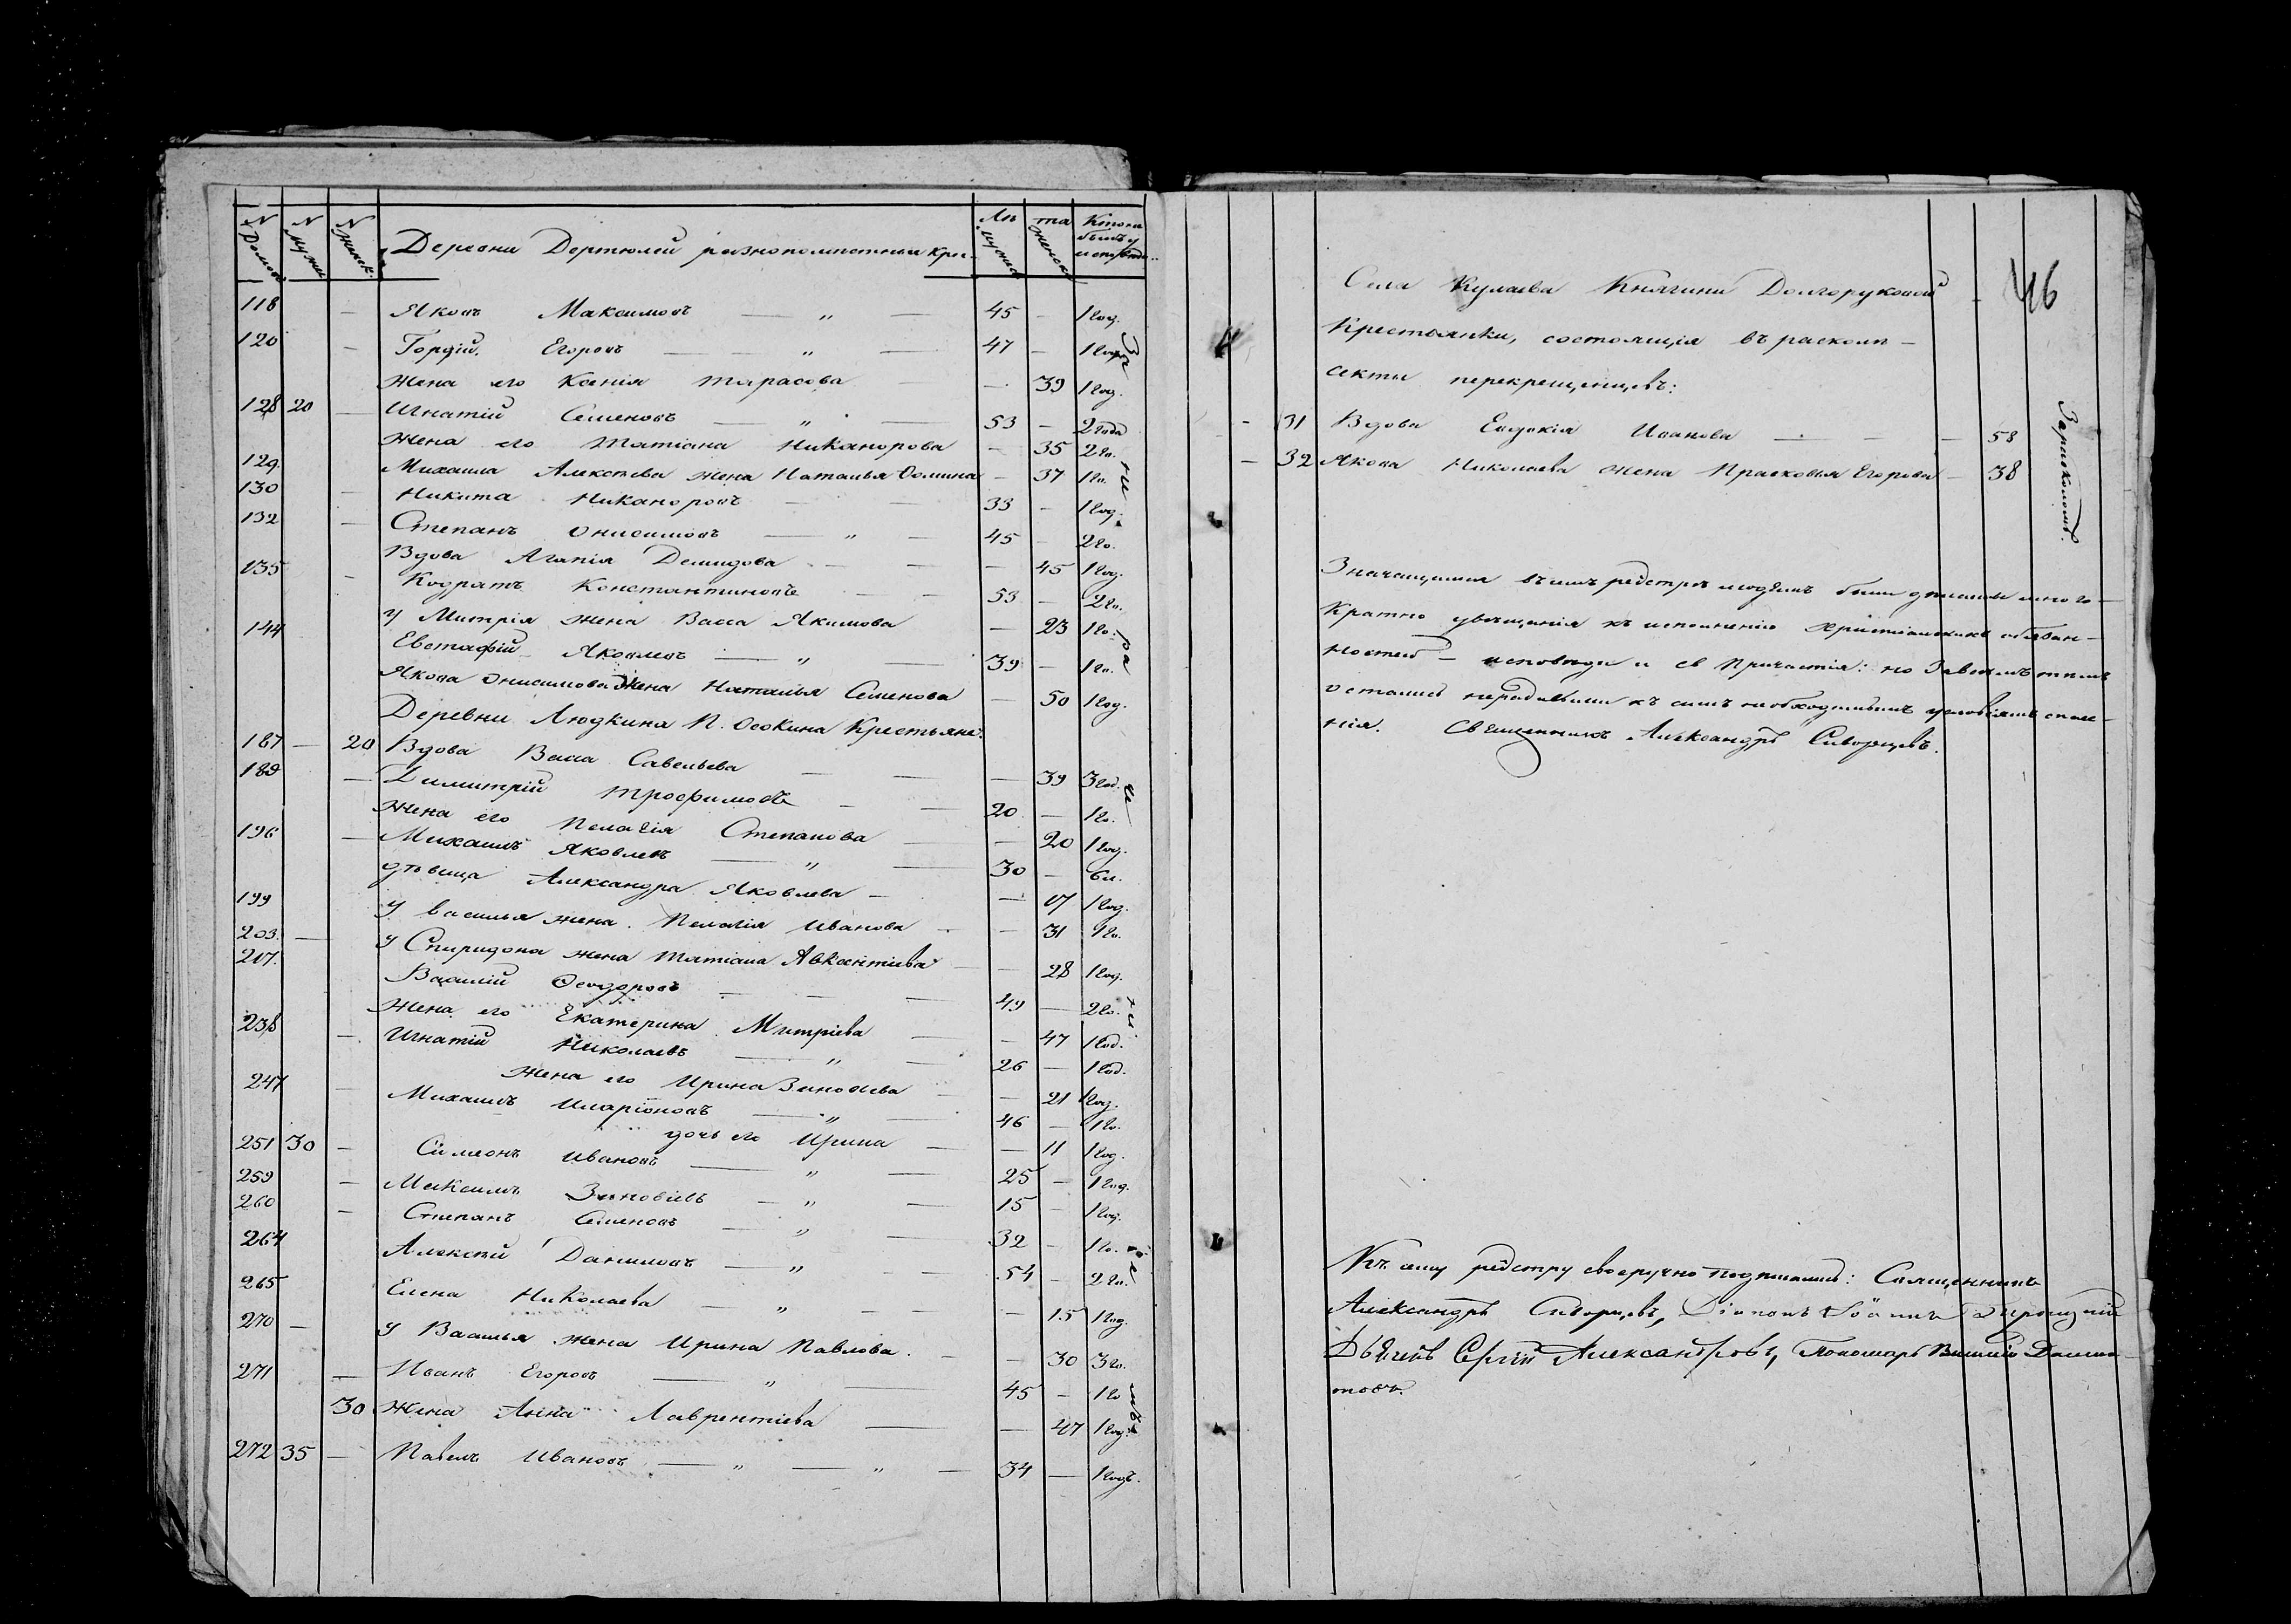 N Домовъ N мужч. N женск. Деревни Дертюлей разнопомпстныи кре- Лѣ мужеск та женска Кто не былъ у исповѣди
118 — Яковъ Максимовъ — „ — 45 — 1 год.
120 — Гордій Егоровъ — „ — 47 — 1 год
Жена его Ксенія Тарасова — 39 1 год.
128 20 — Игнатій Семеновъ — „ — 53 — 2 года
Жена его Татіана Никанорова — 35 2 го.
129. Михаила Алексѣева жена Наталья Фомина — 37 1 го.
130 — Никита Никаноровъ — 33 — 1 год.
132 — Степанъ Онисимовъ — „ — 45 — 2 го.
Вдова Агапія Демидова — 45 1 год.
135 — Кодратъ Константиновъ — 53 — 2 го.
У Митрія жена Васса Якимова — 23 1 го.
144 Евстафій Яковлевъ — „ — 39 — 1 го.
Якова Онисимова Жена Наталья Семенова — 50 1 год.
Деревни Людкина П. Осокина Крестьяне:
187 — 20 Вдова Васса Савельева — 39 3 год.
189 — Димитрій Трофимовъ — 20 — 1 го.
Жена его Пелагія Степанова — 20 1 год.
196 — Михаилъ Яковлевъ — „ — 30 — 6 л.
дѣвица Александра Яковлева — 17 1 год.
199 У Василья жена Пелагія Иванова — 31 1 го.
203. — У Спиридона жена Татіана Авксентіева — 28 1 год.
217. Василій Ѳеодоровъ — 49 — 2 го.
Жена его Екатерина Митріева — 47 1 год.
238 — Игнатій Николаевъ — „ — 26 — 1 год.
Жена его Ирина Зиновіева — 21 1 год.
247 — Михаилъ Иларіоновъ — „ — 46 — 1 го.
дочь его Ирина — 11 1 год.
251 30 — Симеонъ Ивановъ — „ — 25 — 1 год.
259 — Максимъ Зиновіевъ — „ — 15 — 1 год.
260 — Степанъ Семеновъ — „ — 32 — 1 го.
264 Алексѣй Даниловъ — „ — 54 — 2 го.
265 Елена Николаева — „ — 15 1 год.
270 — У Василья жена Ирина Павлова. — 30 3 го.
271 — Иванъ Егоровъ — „ — 45 — 1 го
30 Жена Анна Лаврентіева — 47 1 год.
272 35 — Павелъ Ивановъ — „ — „ — 34 — 1 годъ.
46
Села Кулаева Княгини Долгоруковой
Крестьянки, состоящія въ расколѣ —
секты перекрещенцевъ:
— 31 Вдова Евдокія Иванова — 58
— 32 Якова Николаева жена Прасковья Егорова — 38
За расколомъ.
Значащимся въ семъ реестрѣ людямъ были дѣланы много-
кратно увѣщанія къ исполненію Христіанскихъ обязан-
ностей — исповѣди и св Причастія: но за всемъ тѣмъ
остались нерадивыми къ симъ необходимымъ условіямъ спасе-
нія. Священникъ Александръ Сиворцевъ.
Къ сему реестру своеручно подписались: Священникъ
Александръ Сиворцевъ, Діаконъ Іоаннъ
Дьячекъ Сергій Александровъ, Пономарь Василій
товъ.